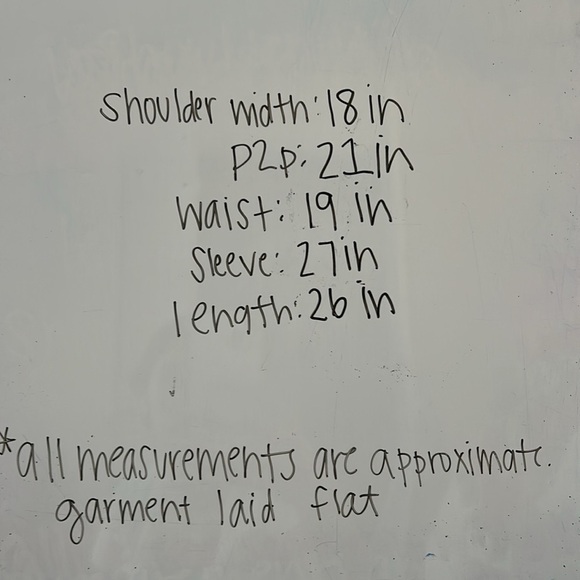 shoulder width: 18 in
p2p: 21 in
waist: 19 in
sleeve: 27 in
length: 26 in
*all measurements are approximate.
garment laid flat